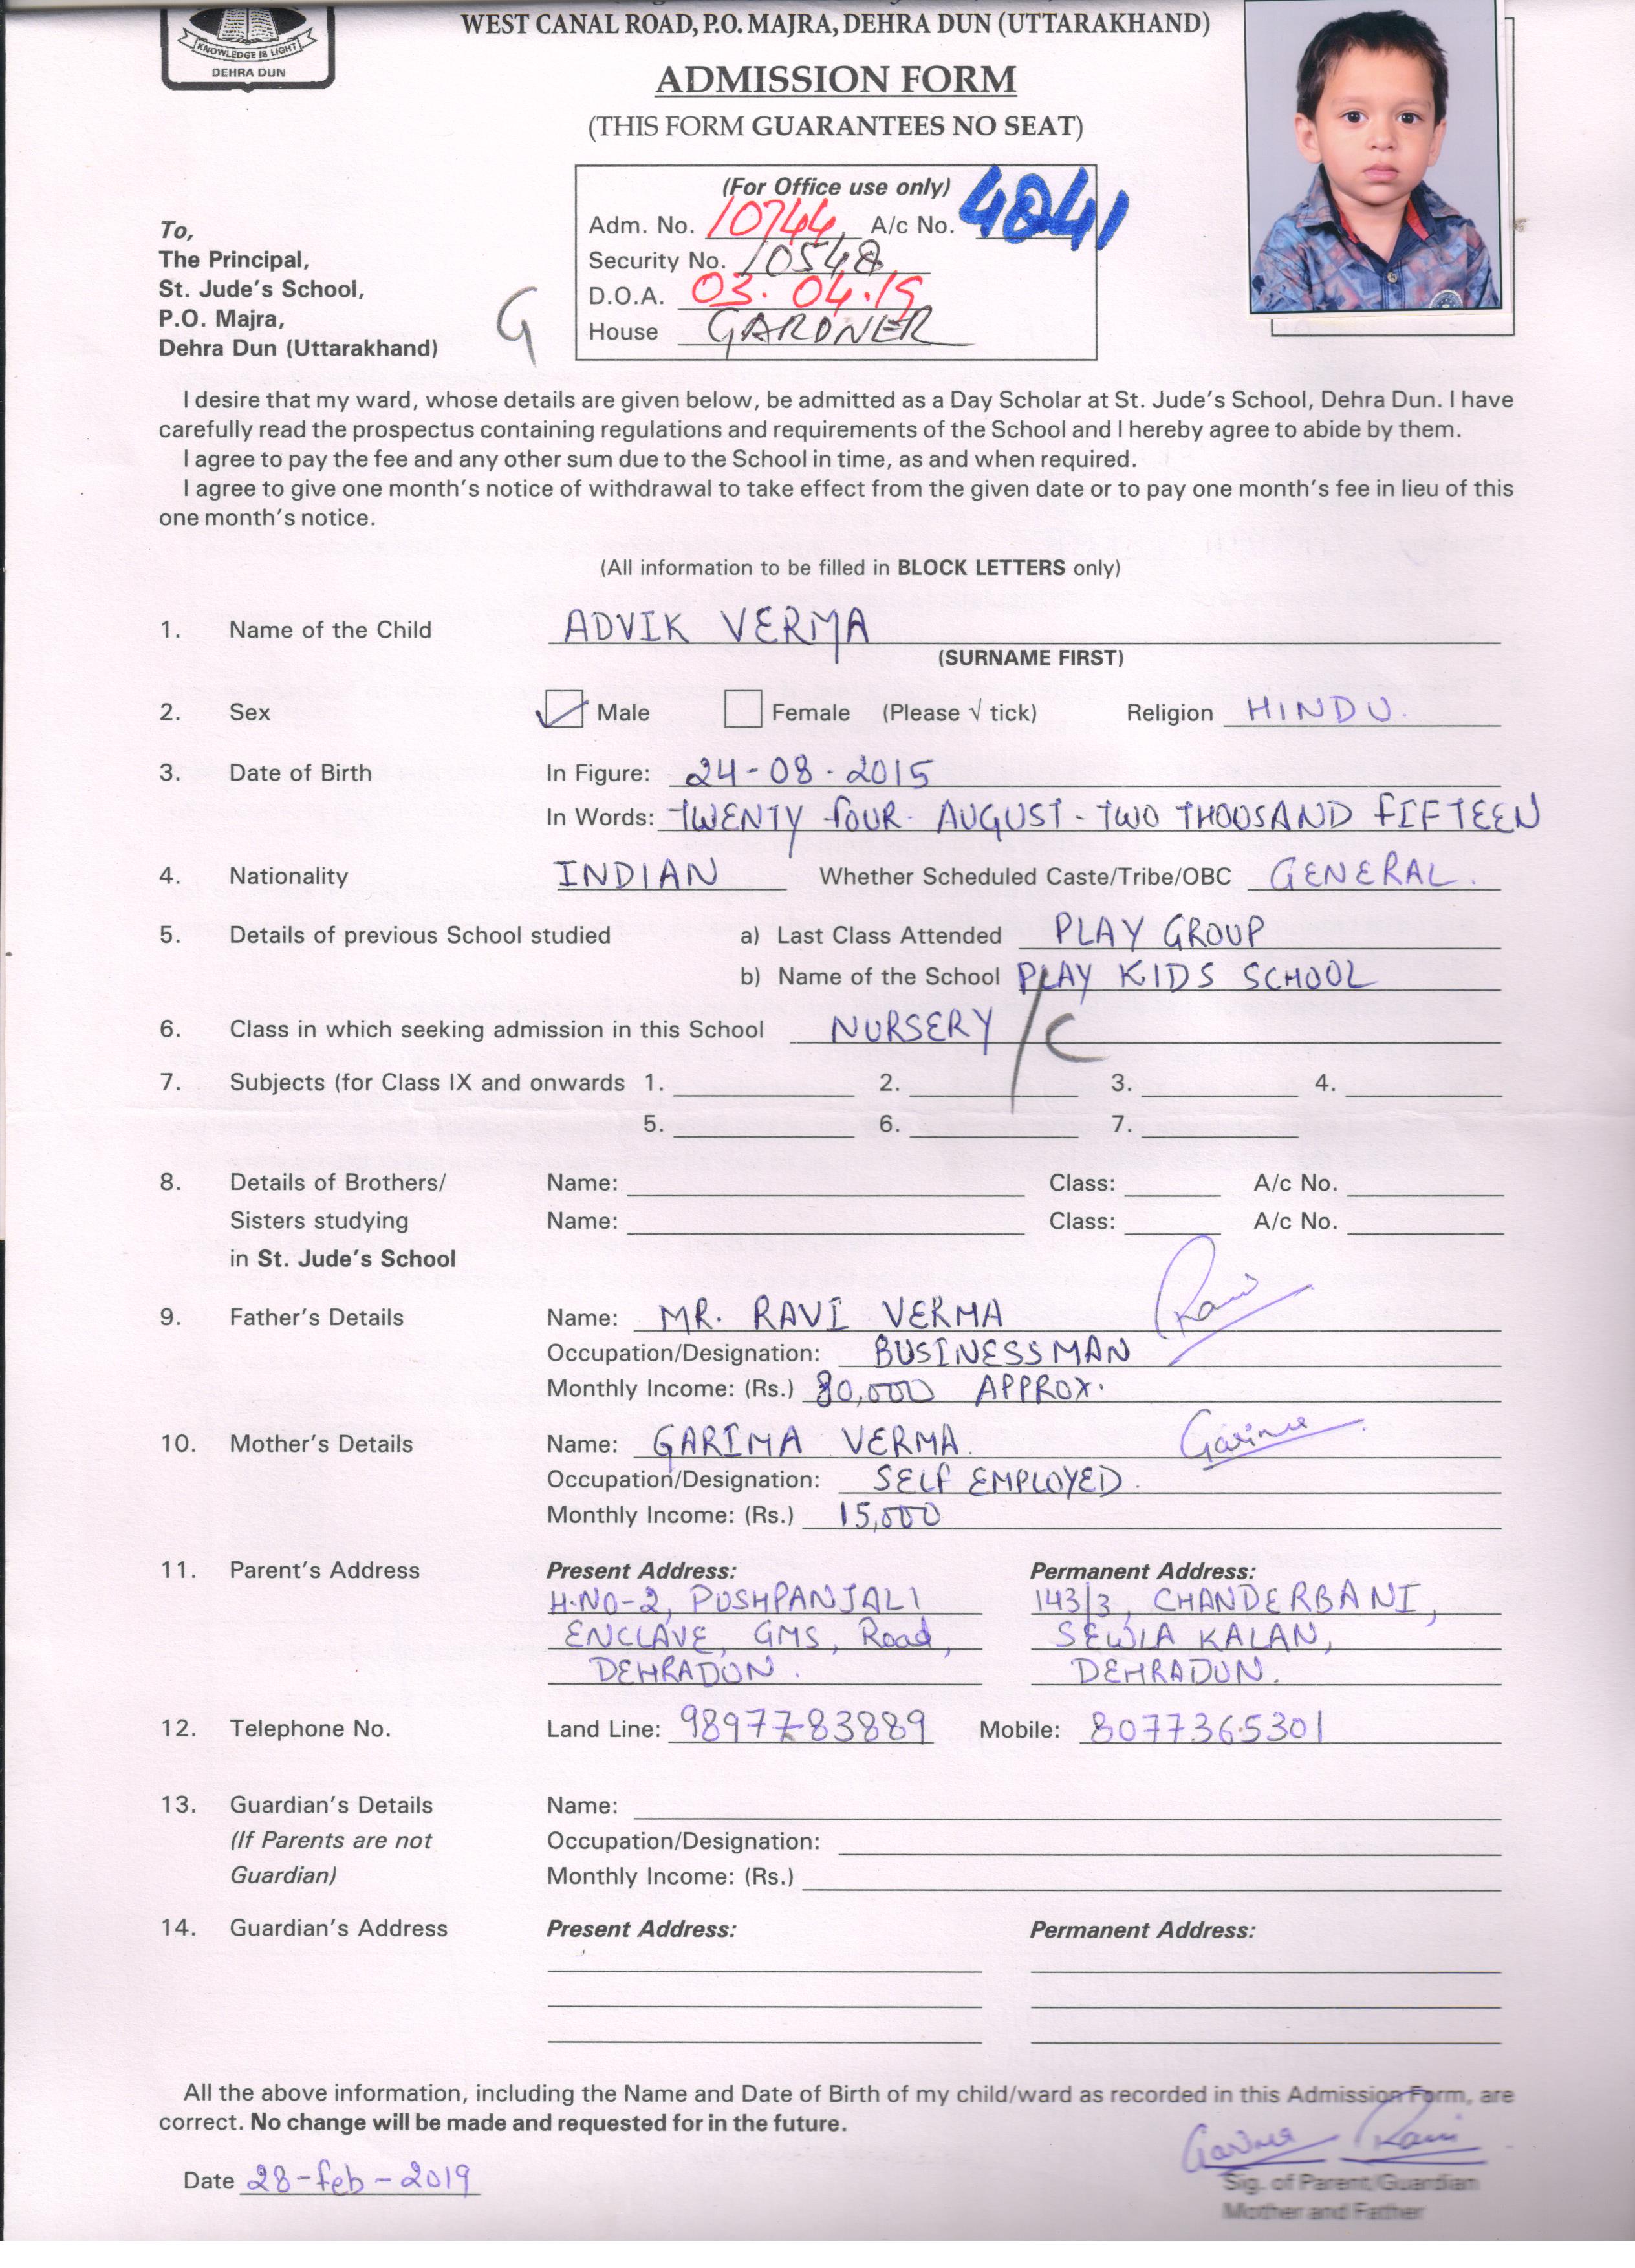 KNOWLEDGE IS LIGHT
DEHRA DUN
WEST CANAL ROAD, P.O. MAJRA, DEHRA DUN (UTTARAKHAND)
ADMISSION FORM
(THIS FORM GUARANTEES NO SEAT)
(For Office use only)
Adm. No. 10744 A/c No. 4041
Security No. 10548
D.O.A. 03.04.19
House GARDNER
To,
The Principal,
St. Jude's School,
P.O. Majra,
Dehra Dun (Uttarakhand)
G
I desire that my ward, whose details are given below, be admitted as a Day Scholar at St. Jude's School, Dehra Dun. I have
carefully read the prospectus containing regulations and requirements of the School and I hereby agree to abide by them.
I agree to pay the fee and any other sum due to the School in time, as and when required.
I agree to give one month's notice of withdrawal to take effect from the given date or to pay one month's fee in lieu of this
one month's notice.
(All information to be filled in BLOCK LETTERS only)
1. Name of the Child ADVIK VERMA
(SURNAME FIRST)
2. Sex Male Female (Please √ tick) Religion HINDU.
3. Date of Birth In Figure: 24-08-2015
In Words: TWENTY fOUR- AUGUST- TWO THOUSAND FIFTEEN
4. Nationality INDIAN Whether Scheduled Caste/Tribe/OBC GENERAL.
5. Details of previous School studied a) Last Class Attended PLAY GROUP
b) Name of the School PLAY KIDS SCHOOL
6. Class in which seeking admission in this School NURSERY / C
7. Subjects (for Class IX and onwards 1. 2. 3. 4.
5. 6. 7.
8. Details of Brothers/ Name: Class: A/c No.
Sisters studying Name: Class: A/c No.
in St. Jude's School
9. Father's Details Name: MR. RAVI VERMA Ravi
Occupation/Designation: BUSINESSMAN
Monthly Income: (Rs.) 80,000 APPROX.
10. Mother's Details Name: GARIMA VERMA. Garima
Occupation/Designation: SELF EMPLOYED.
Monthly Income: (Rs.) 15,000
11. Parent's Address Present Address: Permanent Address:
H.NO-2, PUSHPANJALI 143/3, CHANDERBANI,
ENCLAVE, GMS, Road, SEWLA KALAN,
DEHRADUN. DEHRADUN.
12. Telephone No. Land Line: 9897783889 Mobile: 8077365301
13. Guardian's Details Name:
(If Parents are not Occupation/Designation:
Guardian) Monthly Income: (Rs.)
14. Guardian's Address Present Address: Permanent Address:
All the above information, including the Name and Date of Birth of my child/ward as recorded in this Admission Form, are
correct. No change will be made and requested for in the future.
Garima Ravi
Date 28-feb-2019
Sig. of Parent/Guardian
Mother and Father